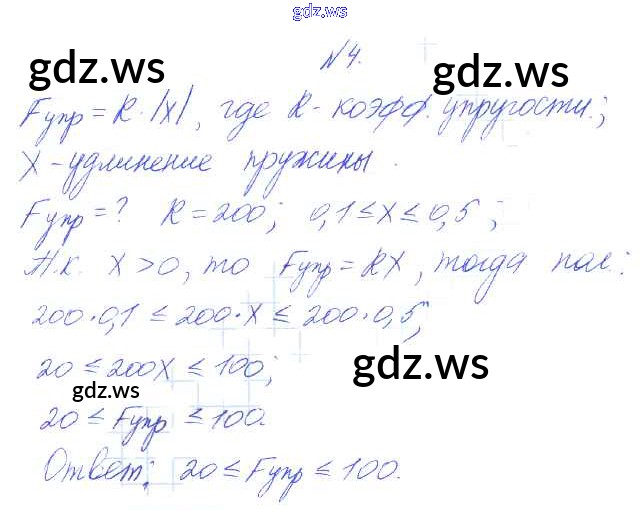 gdz.ws
№4.
gdz.ws gdz.ws
Fупр = R·|x|, где R - коэфф. упругости.;
X - удлинение пружины.
Fупр = ? R = 200; 0,1 ≤ x ≤ 0,5;
Т.к. X > 0, то Fупр = RX, тогда пол.:
200·0,1 ≤ 200·X ≤ 200·0,5;
20 ≤ 200X ≤ 100;
gdz.ws gdz.ws
20 ≤ Fупр ≤ 100.
Ответ: 20 ≤ Fупр ≤ 100.